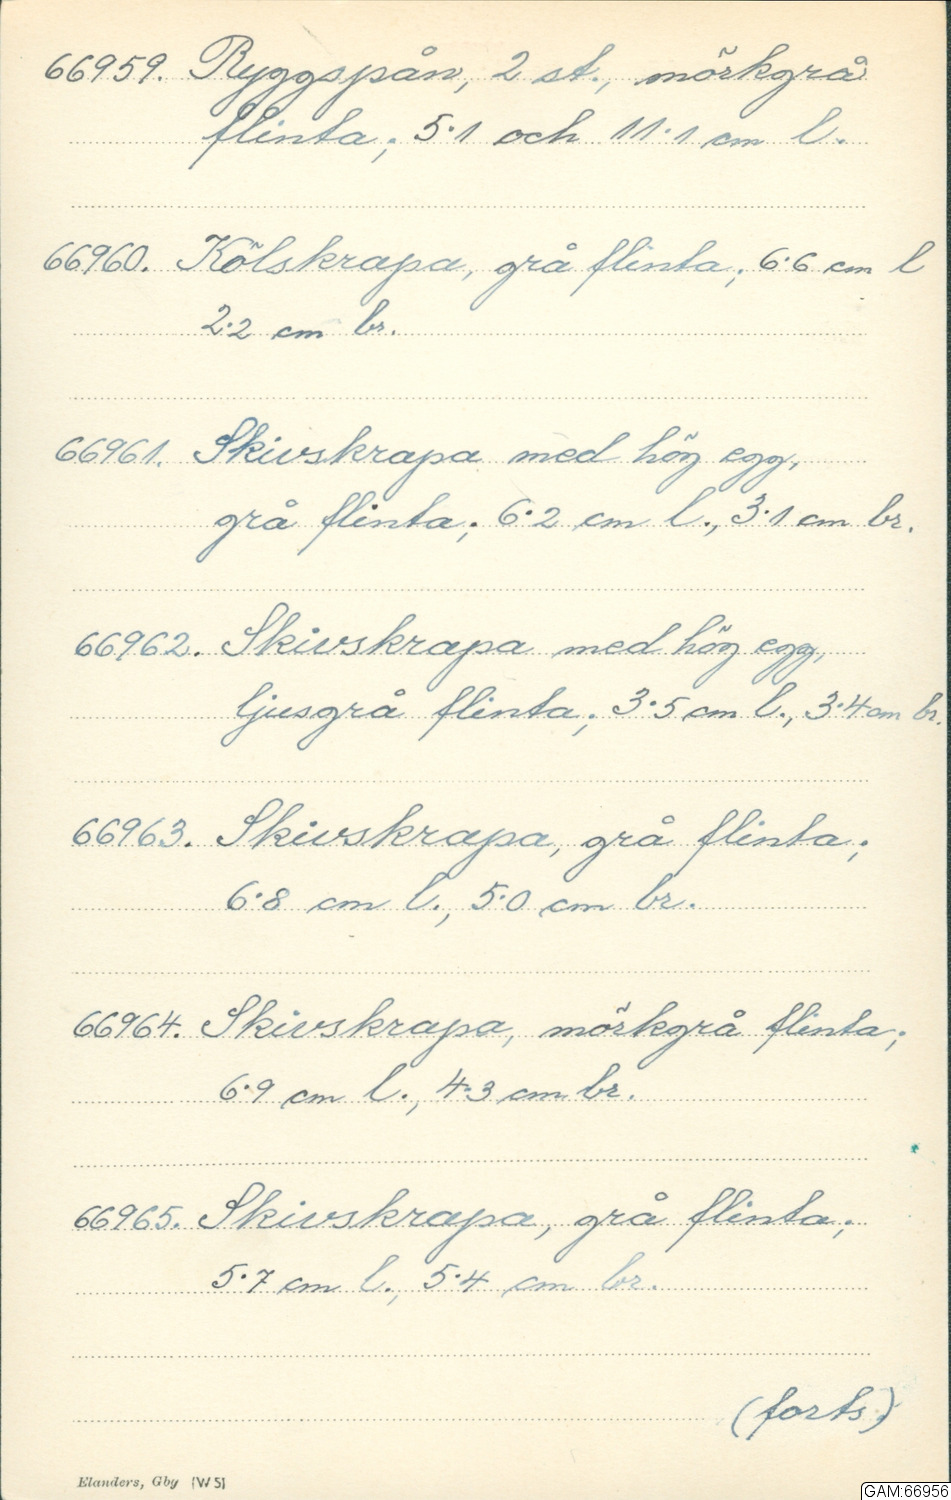 66959. Ryggspån, 2 st., mörkgrå
flinta; 5·1 och 11·1 cm l.
66960. Kölskrapa, grå flinta; 6·6 cm l
2·2 cm br.
66961. Skivskrapa med hög egg,
grå flinta; 6·2 cm l., 3·1 cm br.
66962. Skivskrapa med hög egg,
ljusgrå flinta; 3·5 cm l., 3·4 cm br.
66963. Skivskrapa, grå flinta;
6·8 cm l., 5·0 cm br.
66964. Skivskrapa, mörkgrå flinta;
6·9 cm l., 4·3 cm br.
66965. Skivskrapa, grå flinta;
5·7 cm l., 5·4 cm br.
(forts)
Elanders, Gby [W5]
GAM:66956